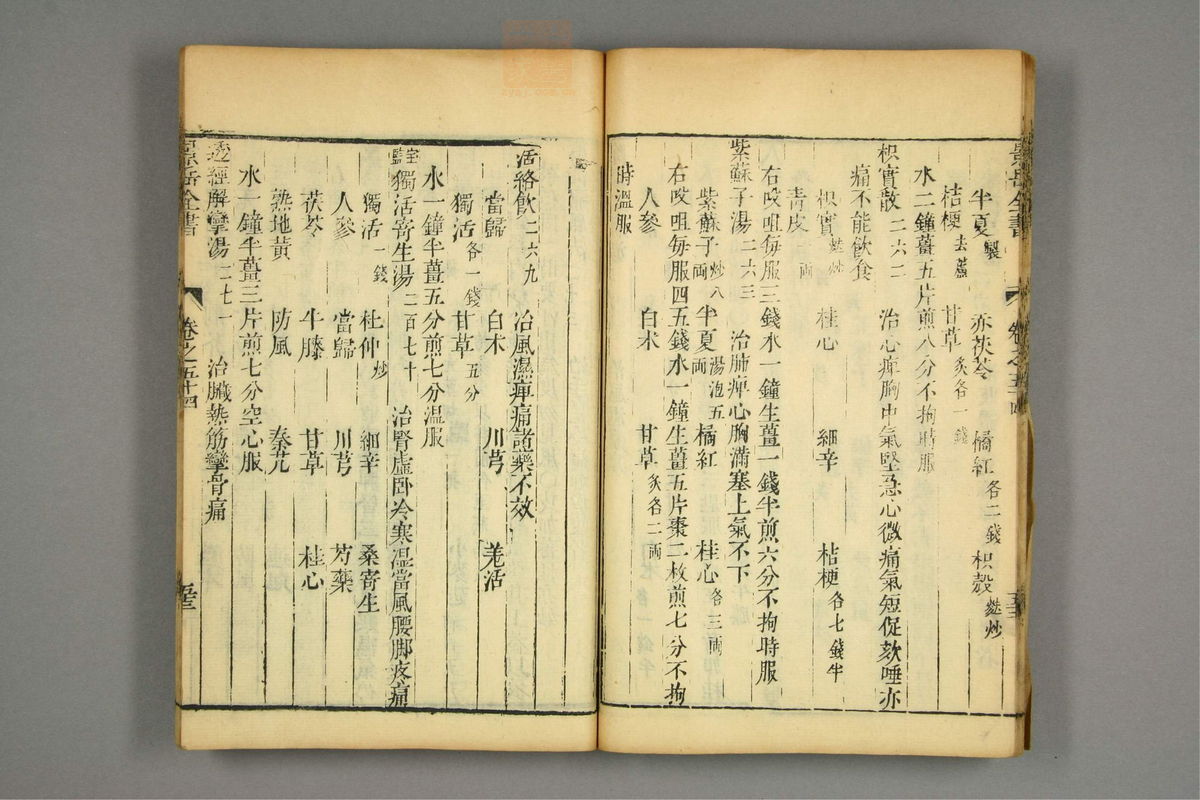 半夏製 赤茯苓 橘紅各二錢 枳殼麩炒
桔梗去蘆 甘草炙各一錢
水二鐘薑五片煎八分不拘時服
枳實散二六二 治心痺胸中氣堅急心微痛氣短促欬唾亦
痛不能飲食
枳實麩炒 桂心 細辛 桔梗各七錢半
青皮一兩
右㕮咀每服三錢水一鐘生薑一錢半煎六分不拘時服
紫蘇子湯二六三 治肺痺心胸滿塞上氣不下
紫蘇子炒八兩 半夏湯泡五兩 橘紅 桂心各三兩
人參 白术 甘草炙各二兩
右㕮咀每服四五錢水一鐘生薑五片棗二枚煎七分不拘
時溫服
活絡飲二六九 治風濕痺痛諸藥不效
當歸 白术 川芎 羌活
獨活各一錢 甘草五分
水一鐘半薑五分煎七分温服
宝鑑獨活寄生湯二百七十 治腎虛卧冷寒湿當風腰脚疼痛
獨活一錢 杜仲炒 細辛 桑寄生
人參 當歸 川芎 芍藥
茯苓 牛膝 甘草 桂心
熟地黃 防風 秦艽
水一鐘半薑三片煎七分空心服
透經解攣湯二七一 治臟熱筋攣骨痛
景岳全書 卷之五十四 五三